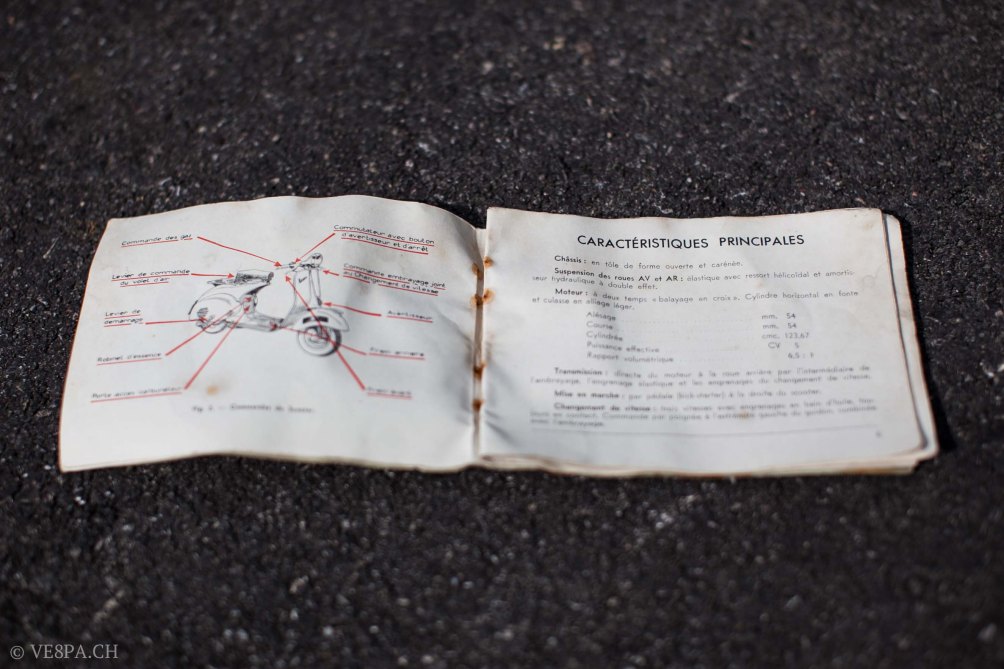 Commande des gaz
Commutateur avec bouton
d'avertisseur et d'arrêt
Levier de commande
du volet d'air
Commande embrayage joint
au changement de vitesse
Levier de
démarrage
Avertisseur
Robinet d'essence
Frein arrière
Porte avion carburateur
Frein avant
Commandes du Scooter
CARACTÉRISTIQUES PRINCIPALES
Châssis : en tôle de forme ouverte et carénée.
Suspension des roues AV et AR : élastique avec ressort hélicoïdal et amortis-
seur hydraulique à double effet.
Moteur : à deux temps « balayage en croix ». Cylindre horizontal en fonte
et culasse en alliage léger.
Alésage mm. 54
Course mm. 54
Cylindrée cmc. 123,67
Puissance effective CV 5
Rapport volumétrique 6,5 : 1
Transmission : directe du moteur à la roue arrière par l'intermédiaire de
l'embrayage, l'engrenage élastique et les engrenages du changement de vitesse.
Mise en marche : par pédale (kick-starter) à la droite du scooter.
Changement de vitesse : trois vitesses avec engrenages en bain d'huile, tou-
jours en contact. Commande par poignée à l'extrémité gauche du guidon, combinée
avec l'embrayage.
© VE8PA.CH